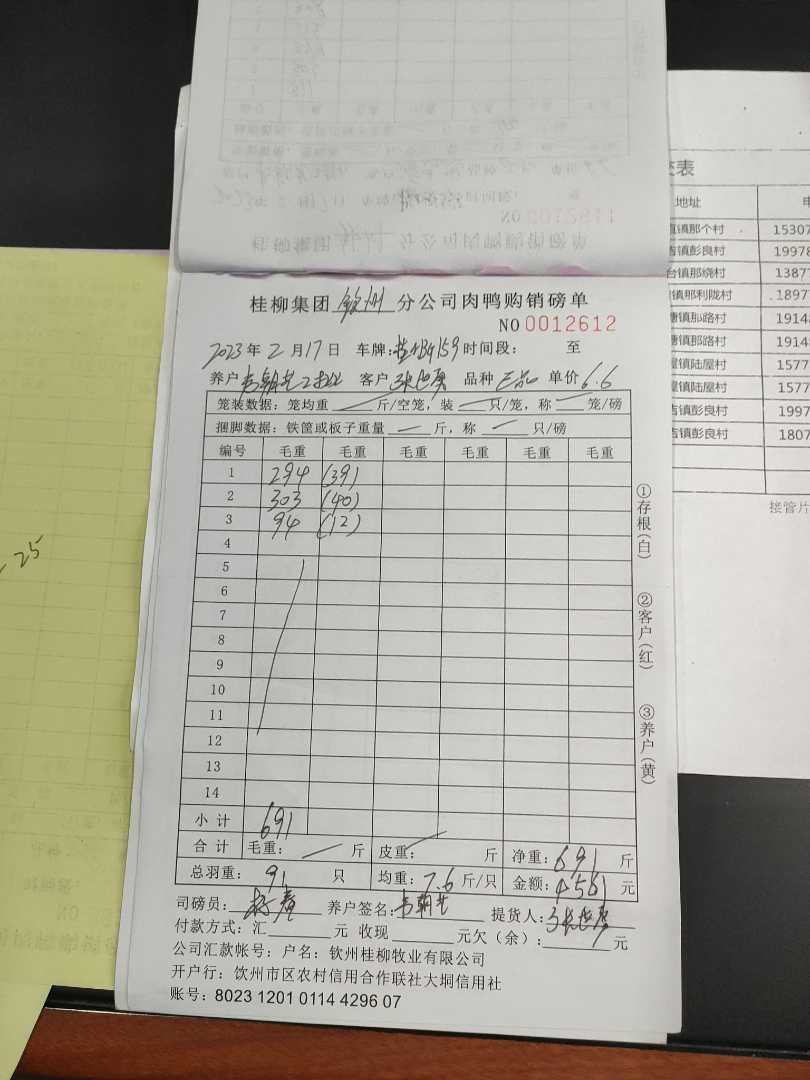 桂柳集团 钦州 分公司肉鸭购销磅单
NO 0012612
2023年2月17日 车牌: 159 时间段: 至
养户 客户 品种 正品 单价 6.6
笼装数据: 笼均重 斤/空笼, 装 只/笼, 称 笼/磅
捆脚数据: 铁筐或板子重量 斤, 称 只/磅
编号 毛重 毛重 毛重 毛重 毛重 毛重
1 294 (39)
2 303 (40)
3 94 (12)
4
5
6
7
8
9
10
11
12
13
14
小计 691
合计 毛重: 斤 皮重: 斤 净重: 691 斤
总羽重: 91 只 均重: 7.6 斤/只 金额: 4561 元
司磅员: 养户签名: 提货人:
付款方式: 汇 元 收现 元欠(余): 元
公司汇款帐号: 户名: 钦州桂柳牧业有限公司
开户行: 钦州市区农村信用合作联社大垌信用社
账号: 8023 1201 0114 4296 07
①存根(白)
②客户(红)
③养户(黄)
表
地址
镇那个村 15307
镇彭良村 19978
台镇那绕村 13877
镇那利陇村 18977
镇那路村 19148
镇那路村 19148
镇陆屋村 19157
镇陆屋村 19157
镇彭良村 1997
镇彭良村 1807
接管片
25